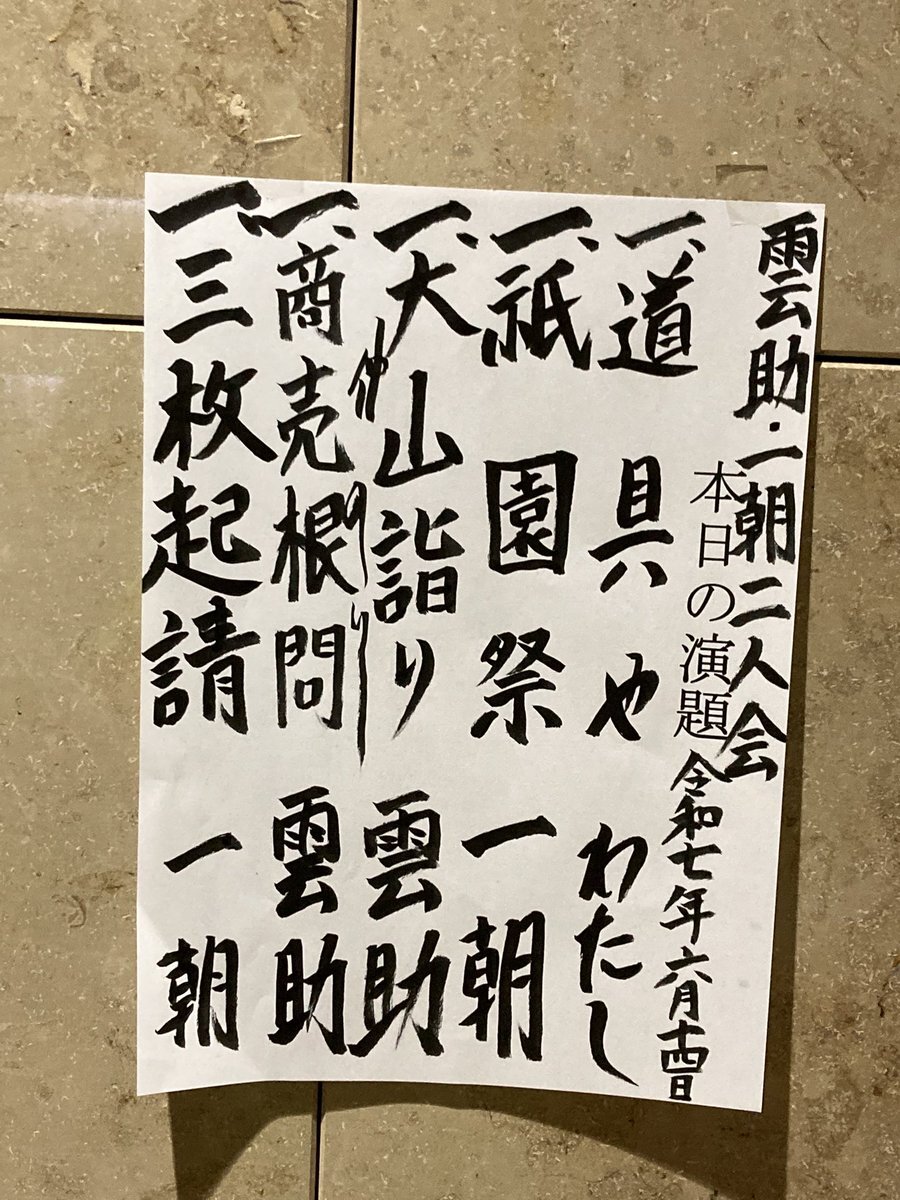 雲助・一朝二人会
本日の演題 令和七年六月十四日
一、道具や わたし
一、祇園祭 一朝
一、大山詣り 雲助
仲入り
一、商売根問 雲助
一、三枚起請 一朝